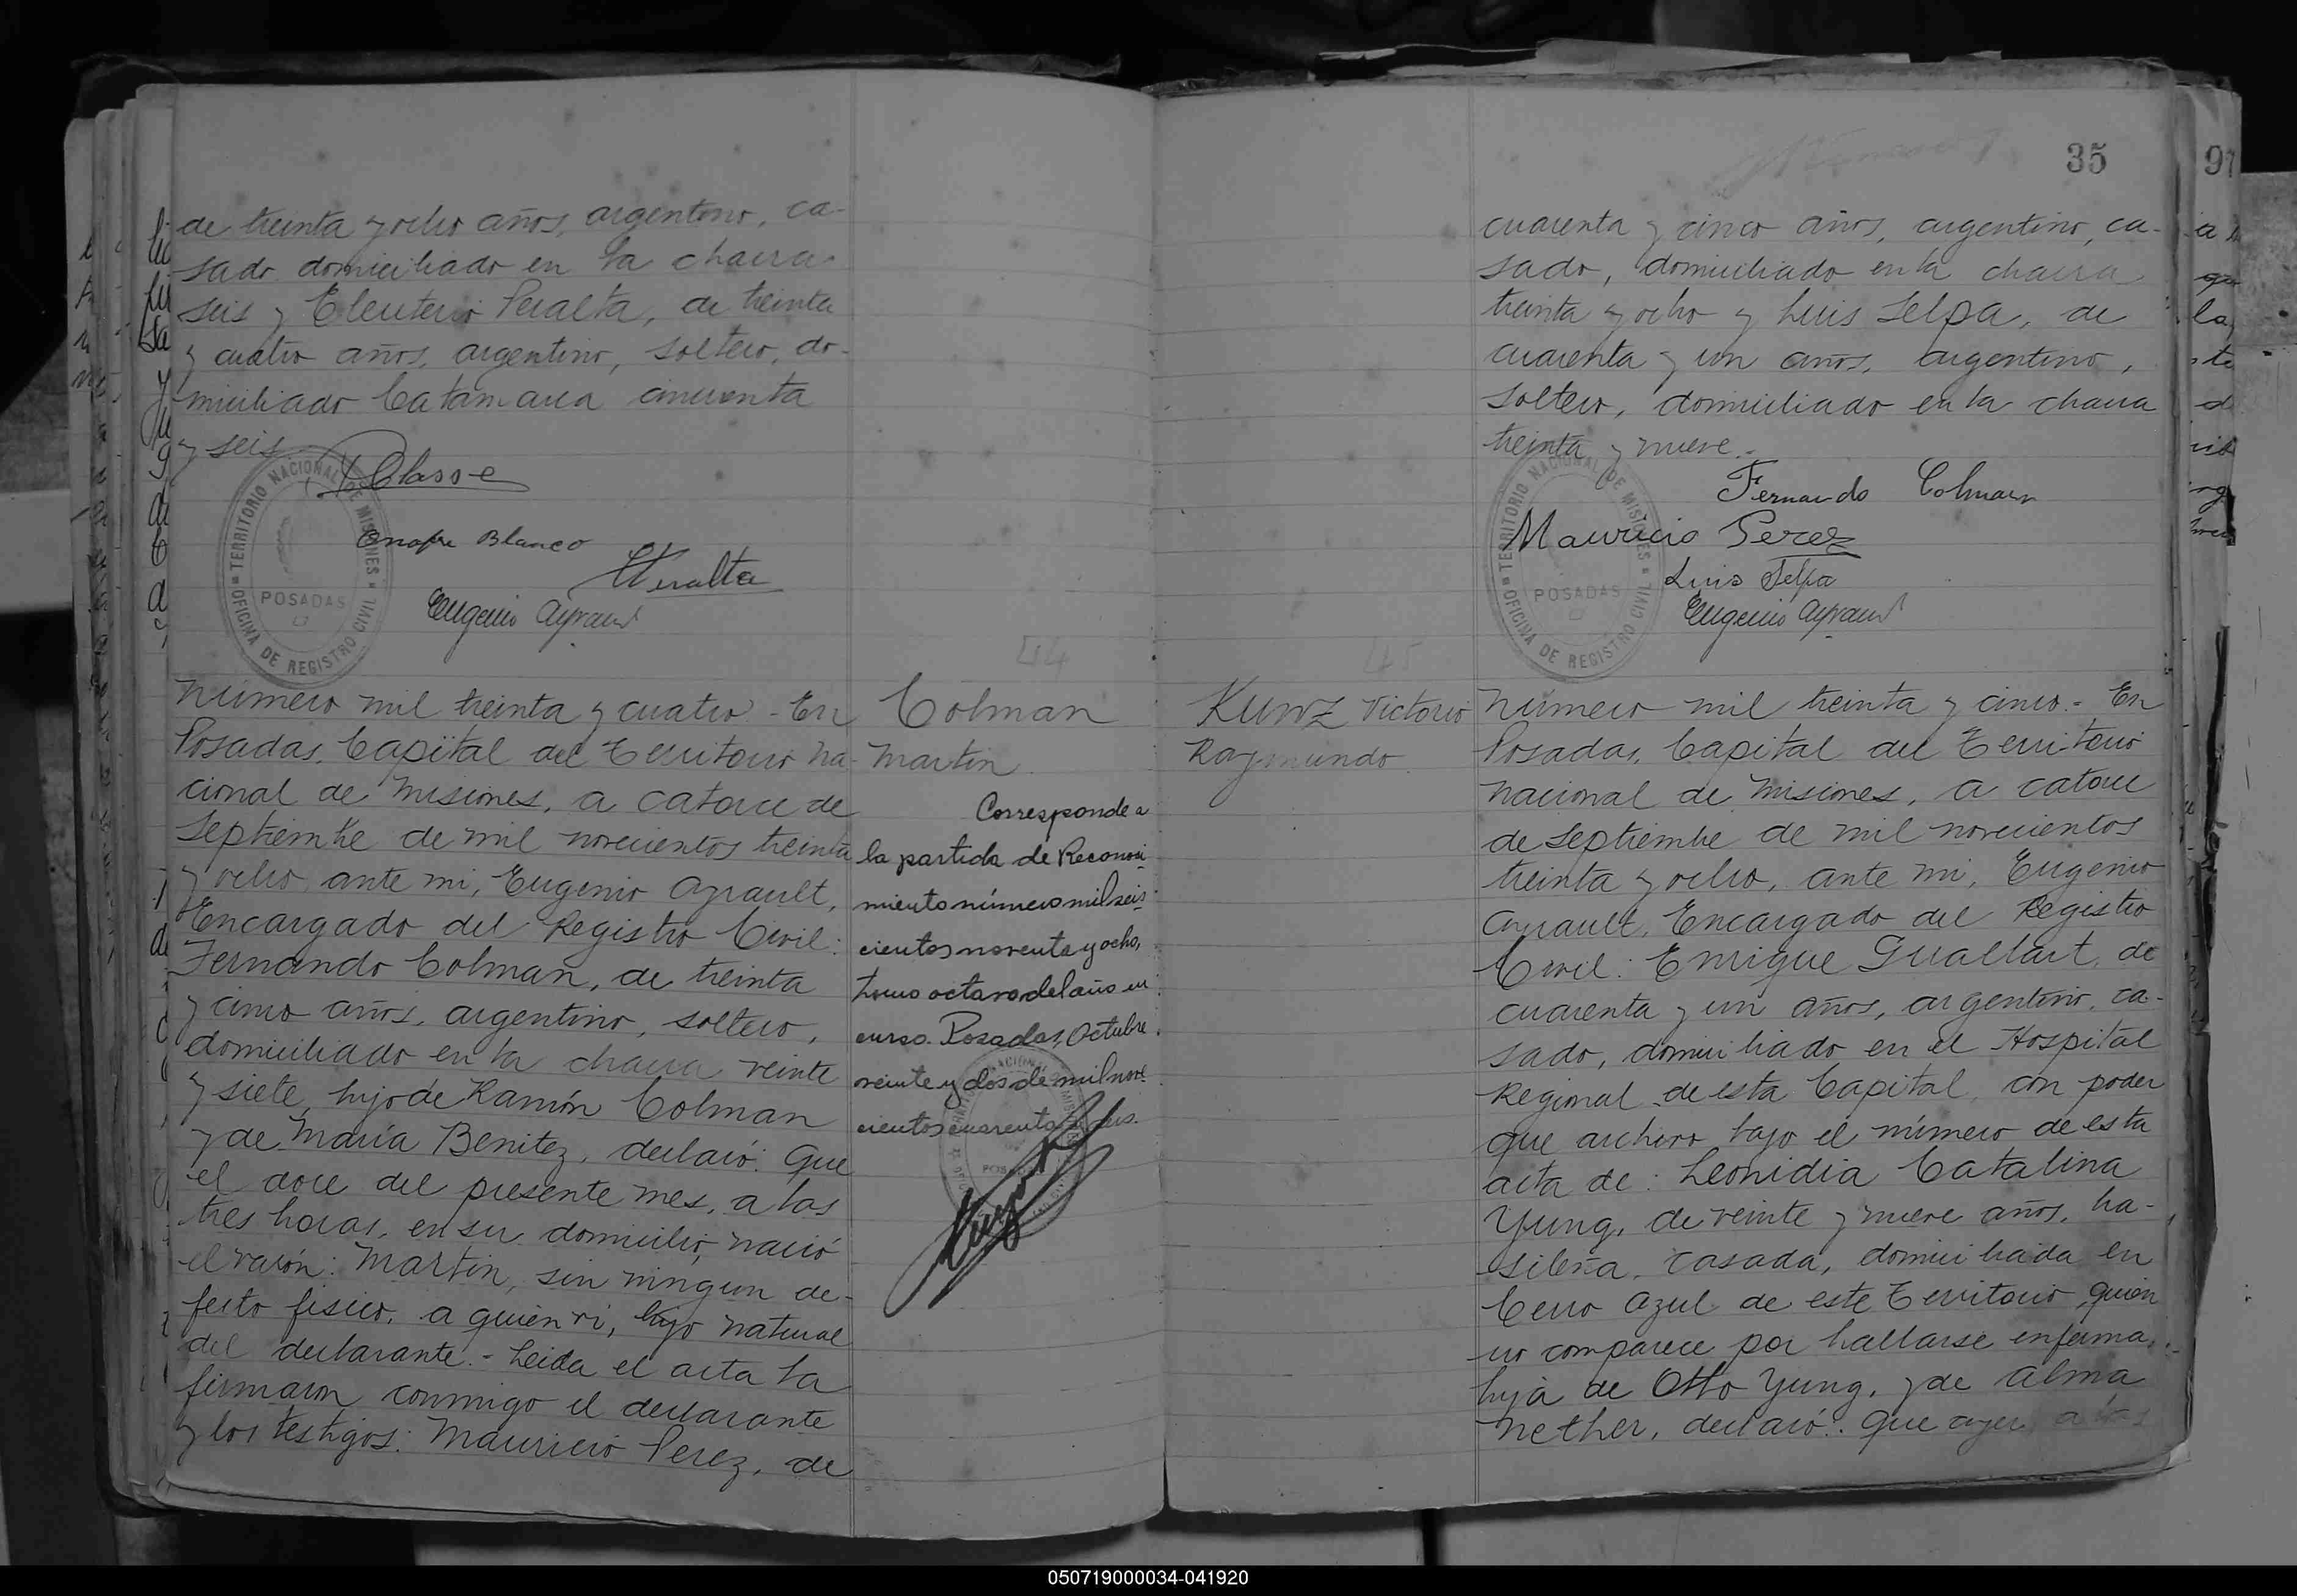 de treinta y ocho años, argentino, ca-
sado domiciliado en la chacra
seis y Eleuterio Peralta, de treinta
y cuatro años, argentino, soltero, do-
miciliado Catamarca cincuenta
y seis
TERRITORIO NACIONAL DE MISIONES
POSADAS
OFICINA DE REGISTRO CIVIL
Onofre Blanco
Peralta
Eugenio Ayrault
44
Número mil treinta y cuatro - En
Posadas, Capital del Territorio Na-
cional de Misiones, a catorce de
Septiembre de mil novecientos treinta
y ocho, ante mi, Eugenio Ayrault,
Encargado del Registro Civil:
Fernando Colman, de treinta
y cinco años, argentino, soltero,
domiciliado en la chacra veinte
y siete, hijo de Ramón Colman
y de María Benitez, declaró: Que
el doce del presente mes, a las
tres horas, en su domicilio, nació
el varón: Martin, sin ningun de-
fecto fisico, a quien vi, hijo natural
del declarante.- Leida el acta la
firmaron conmigo el declarante
y los testigos: Mauricio Perez, de
Colman
Martin
Corresponde a
la partida de Reconoci
miento número mil seis-
cientos noventa y ocho,
tomo octavo del año en
curso. Posadas, Octubre
veinte y dos de mil nove
cientos cuarenta y dos.
35
cuarenta y cinco años, argentino, ca-
sado, domiciliado en la chacra
treinta y ocho y Luis Selpa, de
cuarenta y un años, argentino,
soltero, domiciliado en la chacra
treinta y nueve.-
Fernando Colman
Mauricio Perez
Luis Selpa
Eugenio Ayrault
TERRITORIO NACIONAL DE MISIONES
POSADAS
OFICINA DE REGISTRO CIVIL
45
Kunz Victorio
Raymundo
Número mil treinta y cinco.- En
Posadas, Capital del Territorio
Nacional de Misiones, a catorce
de Septiembre de mil novecientos
treinta y ocho, ante mi, Eugenio
Ayrault, Encargado del Registro
Civil: Enrique Guallart, de
cuarenta y un años, argentino, ca-
sado, domiciliado en el Hospital
Regional de esta Capital, con poder
que archivo bajo el número de esta
acta de: Leonidia Catalina
Yung, de veinte y nueve años, bra-
sileña, casada, domiciliada en
Cerro Azul de este Territorio, quien
no comparece por hallarse enferma,
hija de Otto Yung, y de Alma
Nether, declaró: Que ayer a las
050719000034-041920